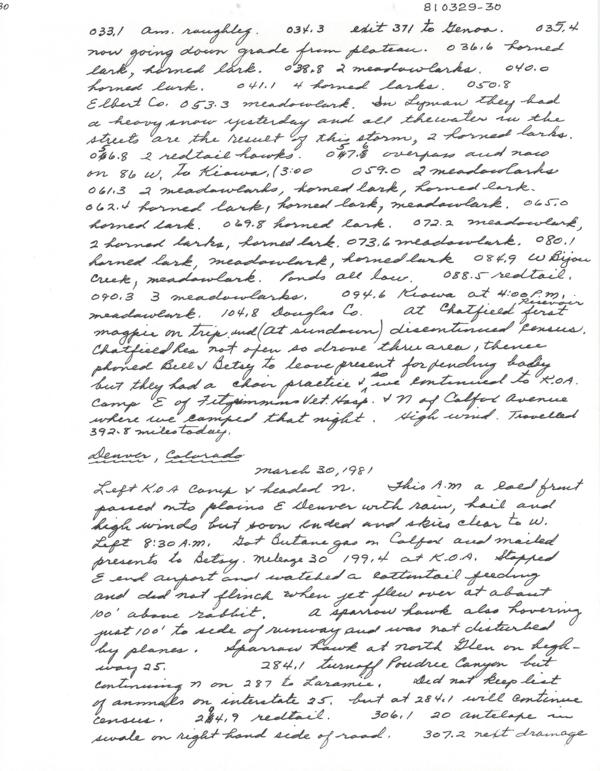 30
810329-30
033.1 Am. roughleg. 034.3 exit 371 to Genoa. 035.4
now going down grade from plateau. 036.6 horned
lark, horned lark. 038.8 2 meadowlarks. 040.0
horned lark. 041.1 4 horned larks. 050.8
Elbert Co. 053.3 meadowlark. In Lyman they had
a heavy snow yesterday and all the water in the
streets are the result of this storm, 2 horned larks.
056.8 2 redtail hawks. 057.6 overpass and now
on 86 W. to Kiowa, (3:00 059.0 2 meadowlarks
061.3 2 meadowlarks, horned lark, horned lark.
062.4 horned lark, horned lark, meadowlark. 065.0
horned lark. 069.8 horned lark. 072.2 meadowlark,
2 horned larks, horned lark. 073.6 meadowlark. 080.1
horned lark, meadowlark, horned lark 084.9 W Bijou
Creek, meadowlark. Ponds all low. 088.5 redtail.
090.3 3 meadowlarks. 094.6 Kiowa at 4:00 P.M.
meadowlark. 104.8 Douglas Co. At Chatfield Reservoir first
magpie on trip and (at sundown) discontinued census.
Chatfield has not open so drove thru area, thence
phoned Bill & Betsy to leave present for pending baby
but they had a choir practice &, so we continued to K.O.A.
Camp E of Fitzsimmons Vet. Hosp. & N of Colfox Avenue
where we camped that night. High wind. Travelled
392.8 miles today.
Denver, Colorado
March 30, 1981
Left K.O.A Camp & headed N. This A.M a cold front
passed onto plains E Denver with rain, hail and
high winds but soon ended and skies clear to W.
Left 8:30 A.M. Got Butane gas on Colfox and mailed
presents to Betsy. Mileage 30 199.4 at K.O.A. Stopped
E end airport and watched a cottontail feeding
and did not flinch when jet flew over at about
100' above rabbit. A sparrow hawk also hovering
just 100' to side of runway and was not disturbed
by planes. Sparrow hawk at north Glen on high-
way 25. 284.1 turnoff Poudre Canyon but
continuing N on 287 to Laramie. Did not keep list
of animals on interstate 25. but at 284.1 will continue
census. 284.9 redtail. 306.1 20 antelope in
swale on right hand side of road. 307.2 next drainage